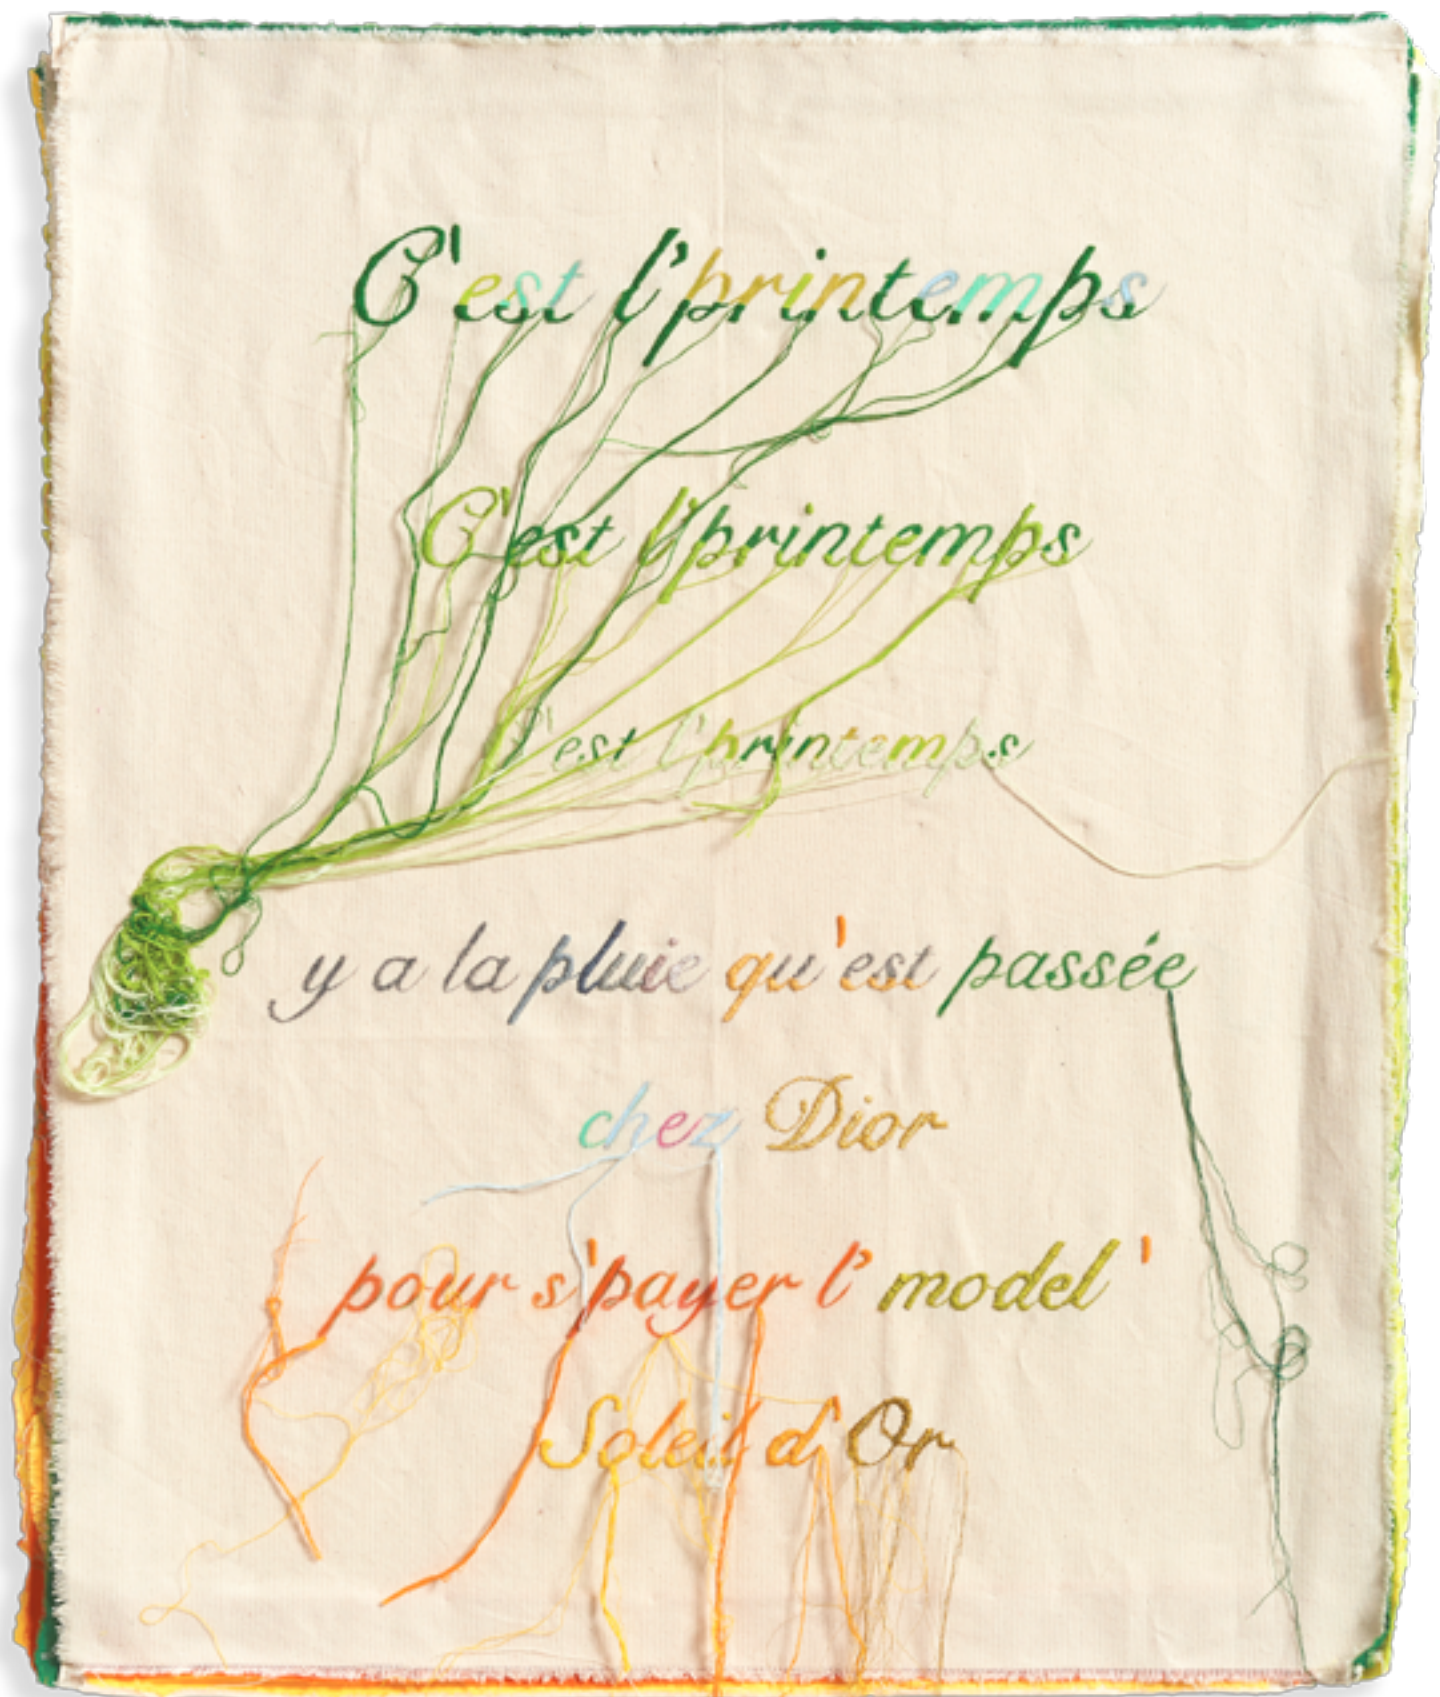 C'est l'printemps
C'est l'printemps
C'est l'printemps
y a la pluie qu'est passée
chez Dior
pour s'payer l' model'
Soleil d'Or